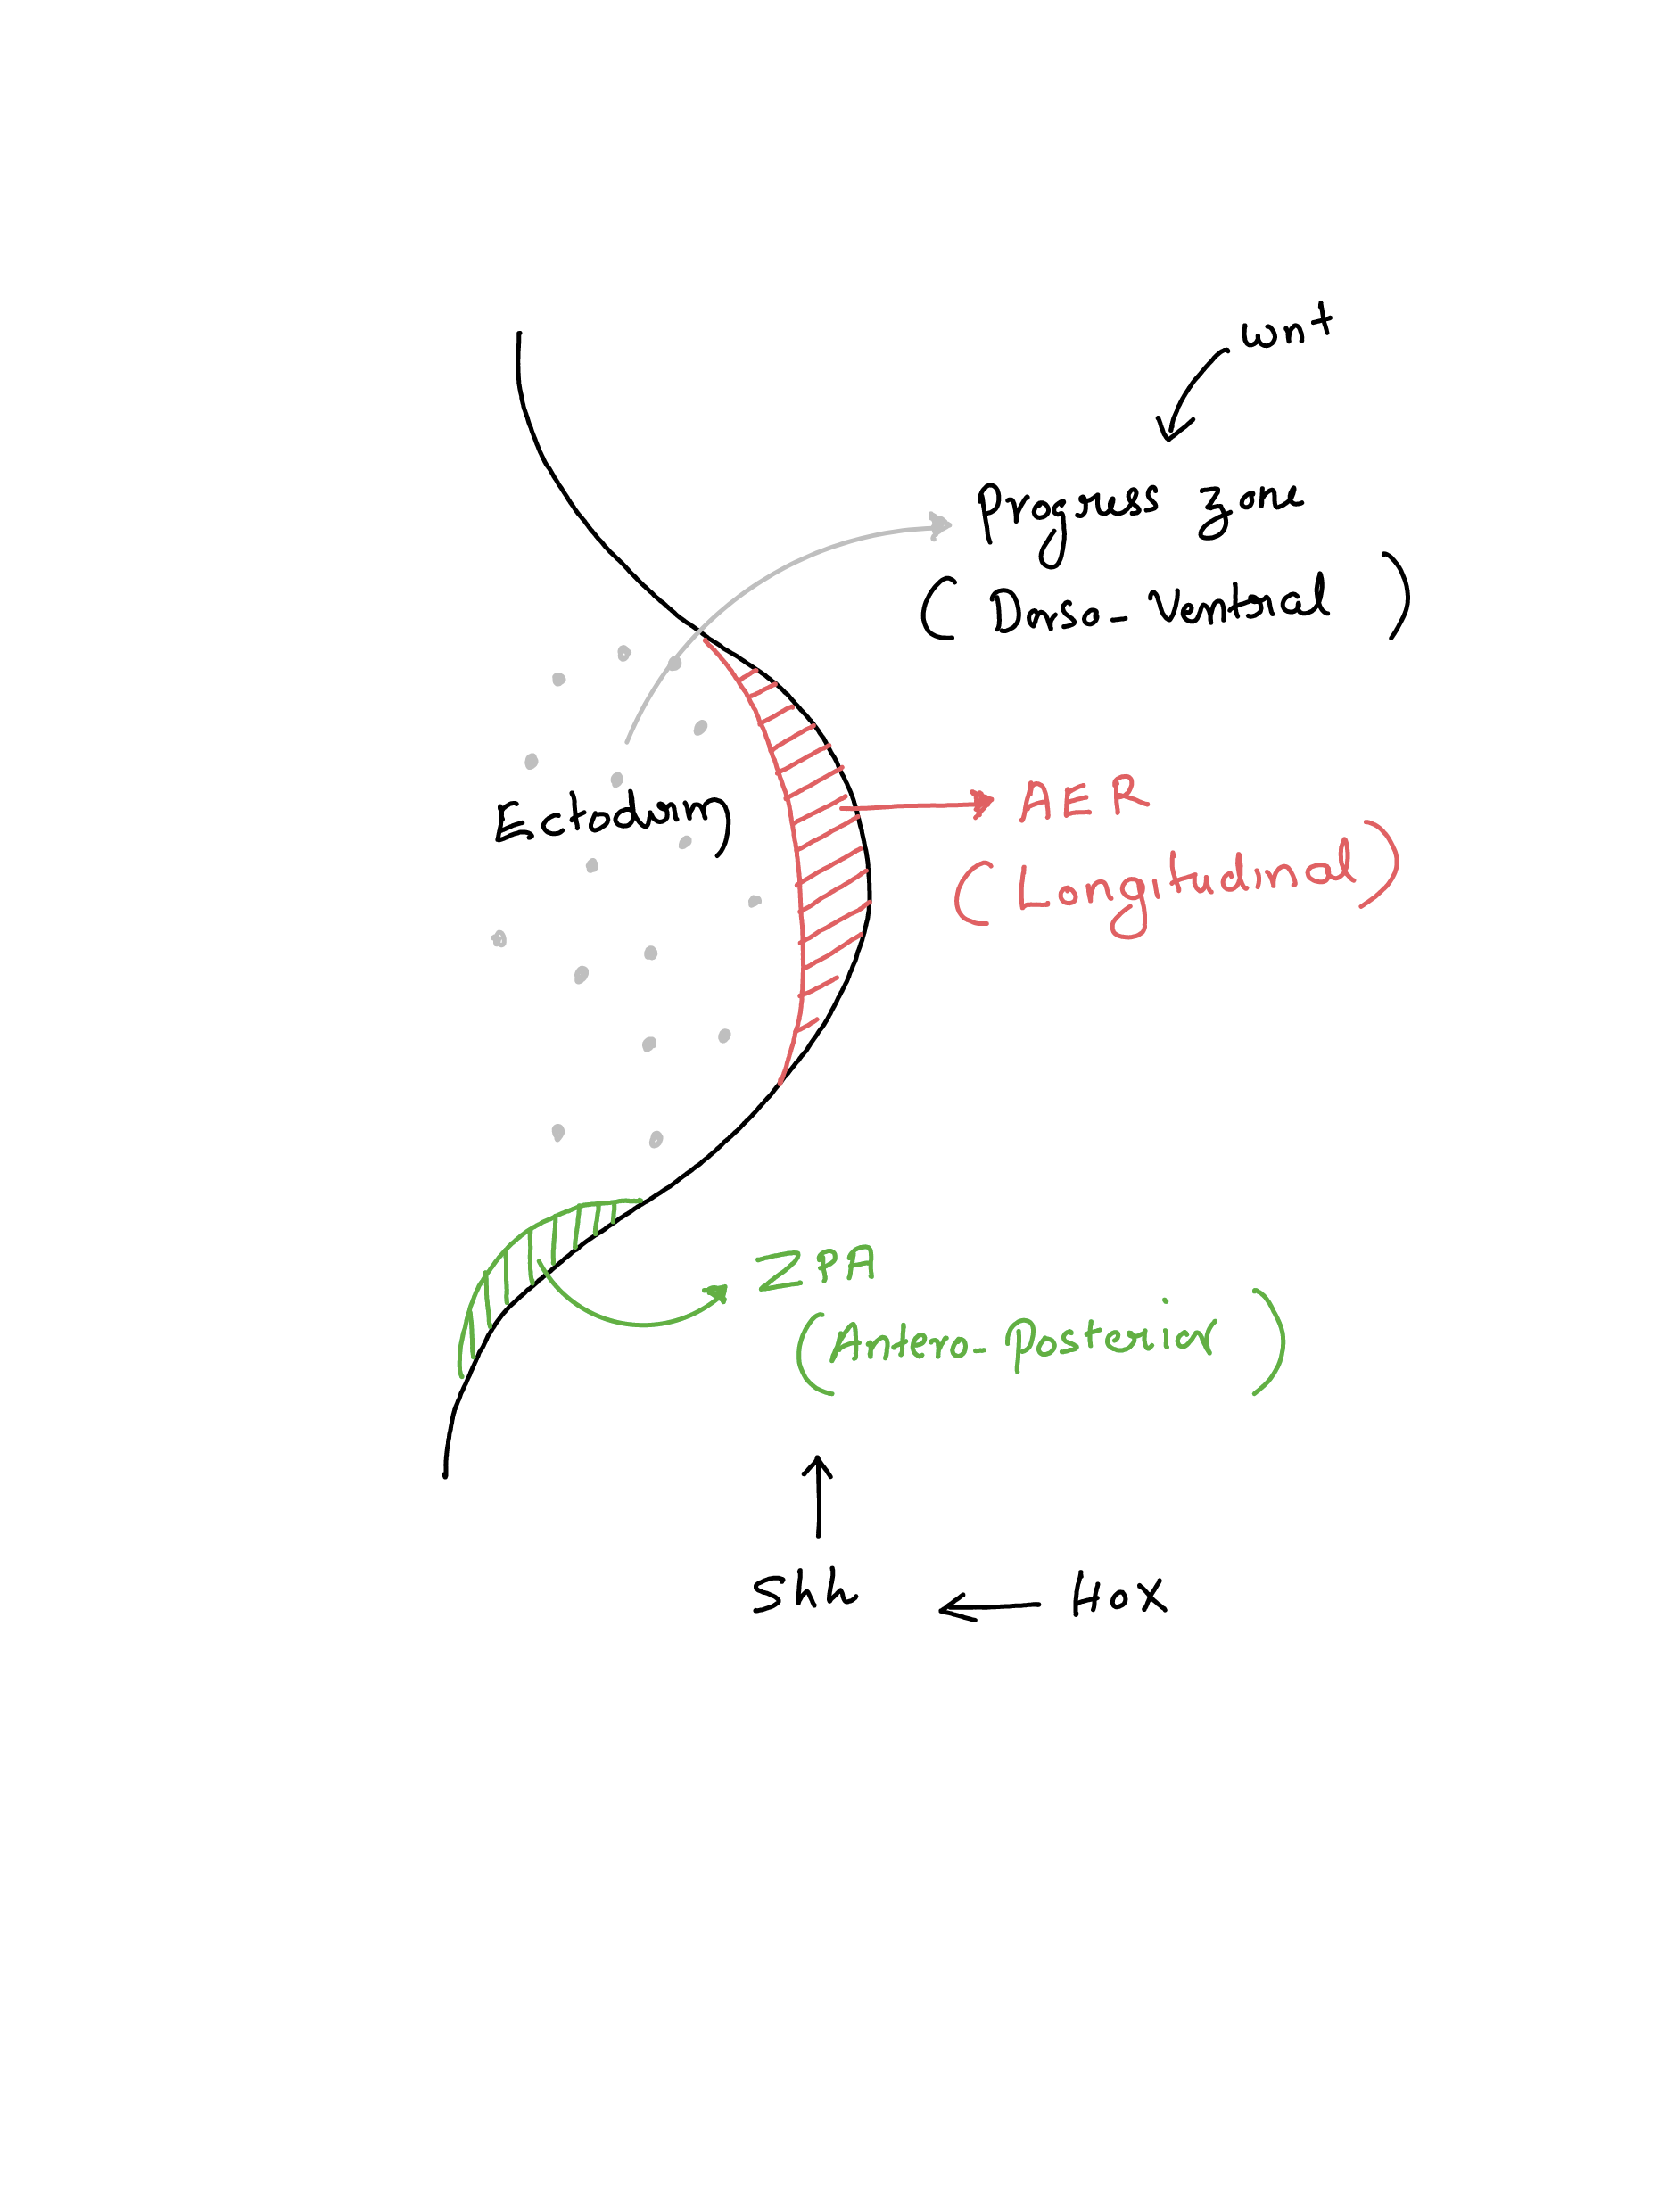 wnt
Progress zone
(Dorso-Ventral)
Ectoderm
AER
(Longitudinal)
ZPA
(Antero-Posterior)
Shh ← Hox